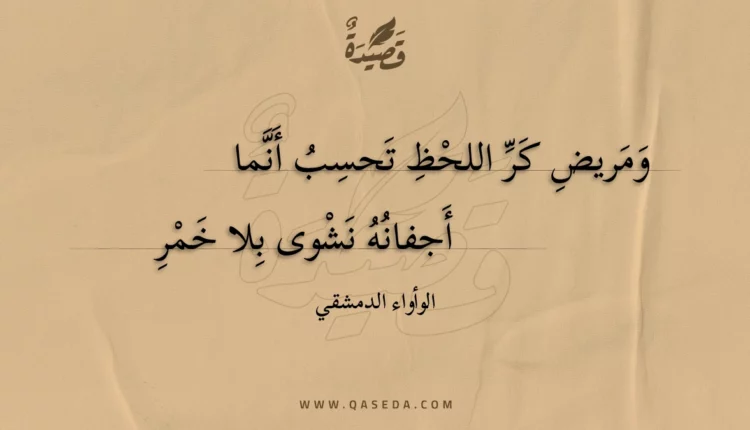 قَصِيْدَةٌ
وَمَريضِ كَرِّ اللحْظِ تَحسِبُ أَنَّما
أَجفانُهُ نَشْوى بِلا خَمْرِ
الوأواء الدمشقي
WWW.QASEDA.COM